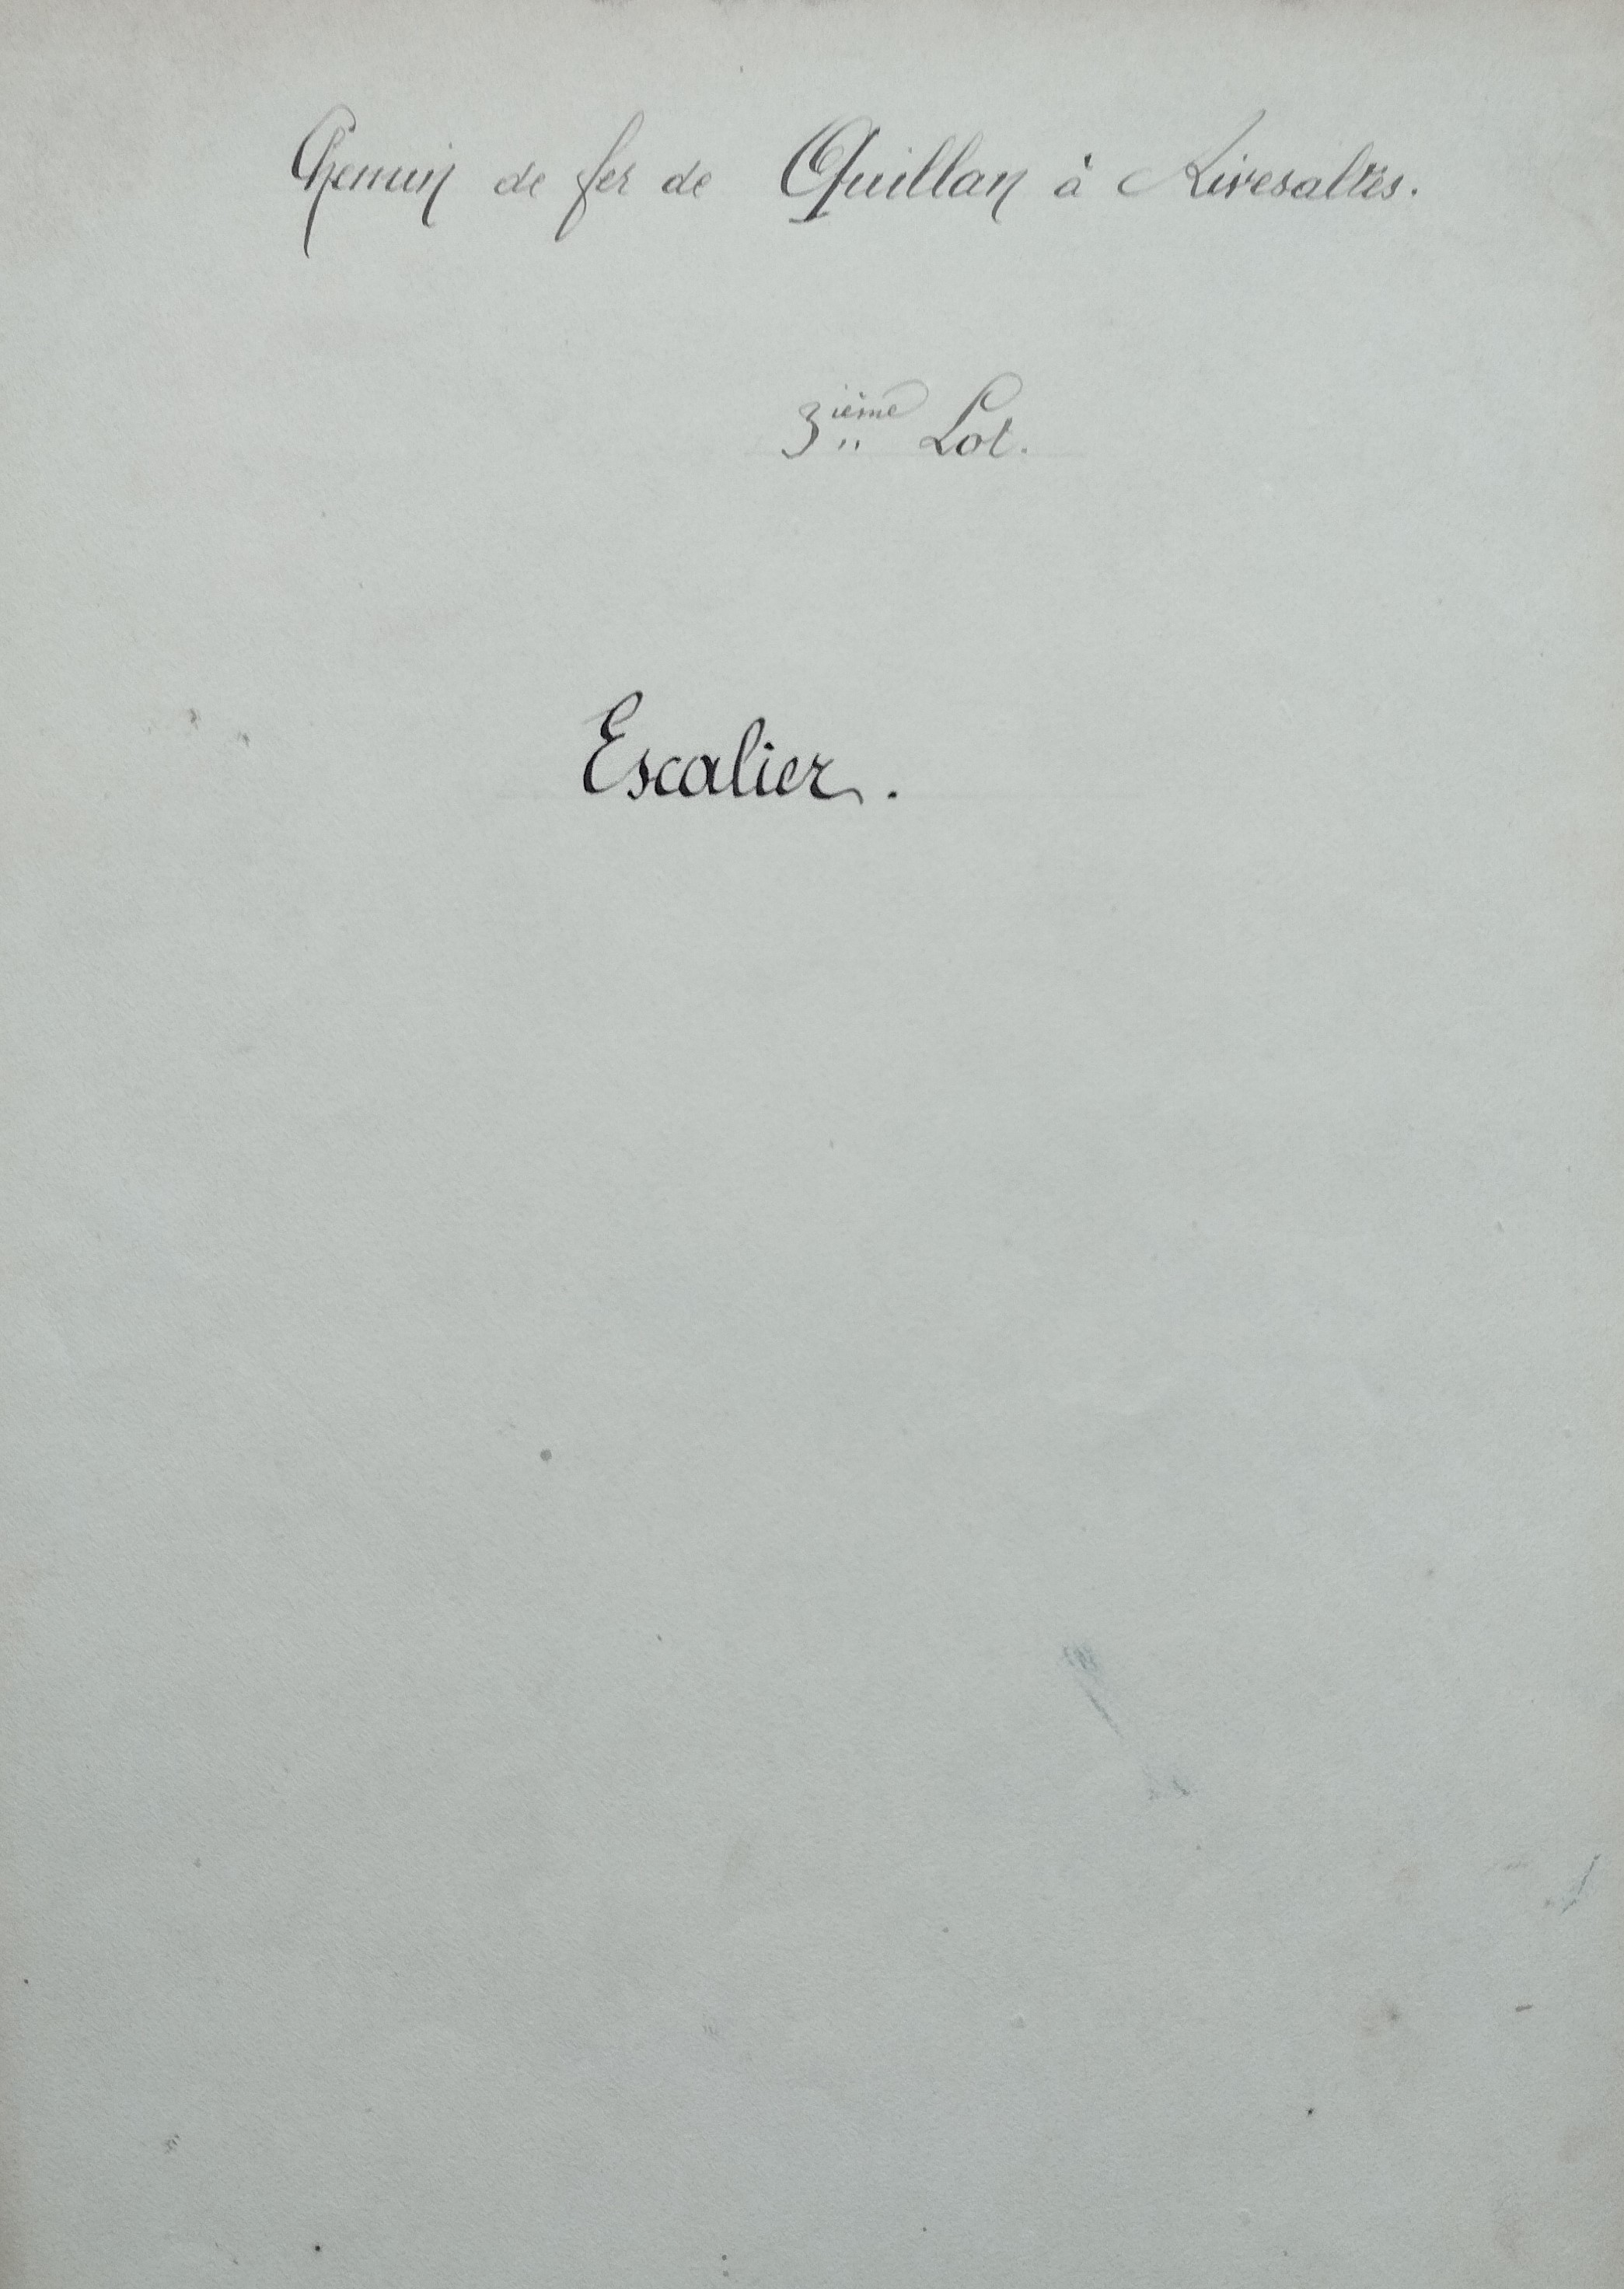 Chemin de fer de Quillan à Rivesaltes.
3ième Lot.
Escalier.